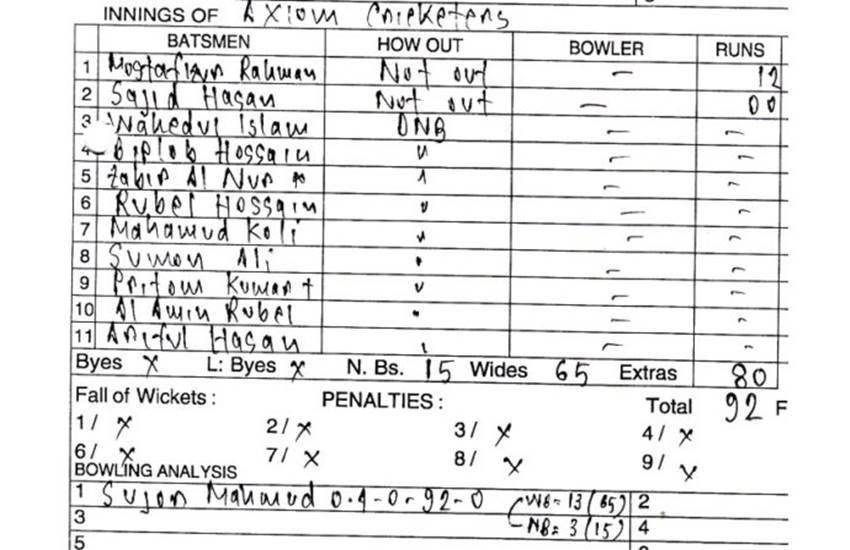 INNINGS OF Axiom Cricketers
BATSMEN HOW OUT BOWLER RUNS
1 Mostafizur Rahman Not out — 12
2 Sajid Hasan Not out — 00
3 Wahedul Islam DNB — —
4 Biplob Hossain " — —
5 Zabir Al Nur * " — —
6 Rubel Hossain " — —
7 Mahamud Koli " — —
8 Sumon Ali " — —
9 Pritom Kumar + " — —
10 Al Amin Rubel " — —
11 Ariful Hasan " — —
Byes x L: Byes x N. Bs. 15 Wides 65 Extras 80
Fall of Wickets : PENALTIES : Total 92 F
1/ x 2/ x 3/ x 4/ x
6/ x 7/ x 8/ x 9/ x
BOWLING ANALYSIS
1 Sujon Mahmud 0.4-0-92-0 (WB = 13 (65) 2
3 NB = 3 (15) 4
5